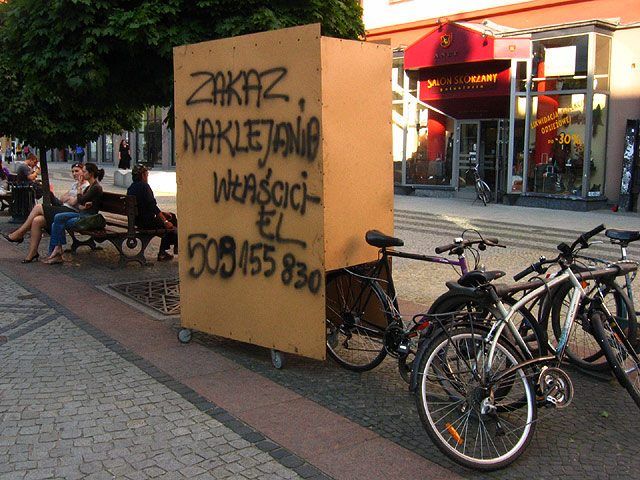 ZAKAZ
NAKLEJANIA
WŁAŚCICI-
EL
509 155 830
SALON SKÓRZANY
LIKWIDACJA
ODZIEŻOWEJ
DO -30%